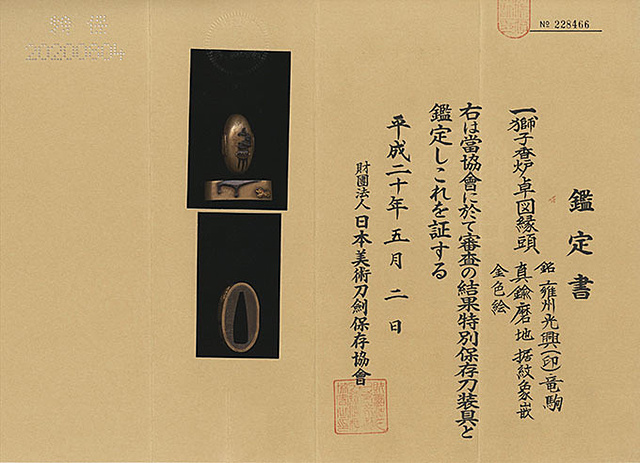 № 228466
鑑定書
一獅子香炉卓図縁頭
銘 雍州光興(印)竜駒
真鍮磨地 据紋象嵌
金色絵
右は當協會に於て審査の結果特別保存刀装具と
鑑定しこれを証する
平成二十年五月二日
財團法人 日本美術刀劍保存協會